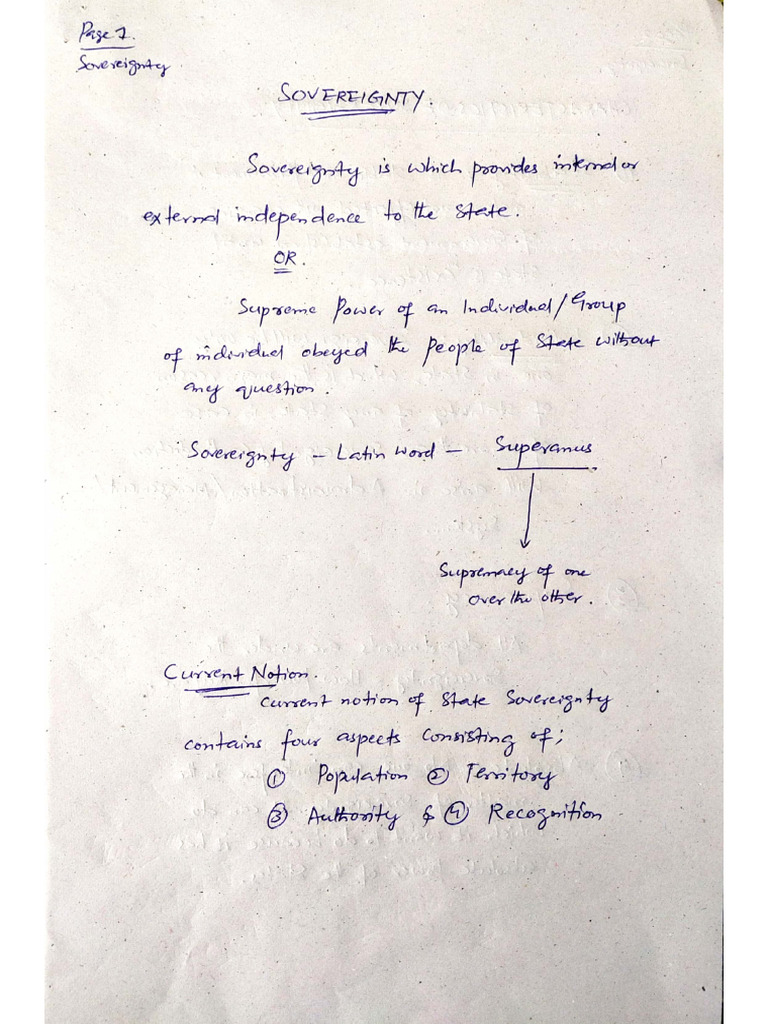 Page 1.
Sovereignty
SOVEREIGNTY.
Sovereignty is which provides internal or
external independence to the state.
OR.
Supreme Power of an Individual/Group
of individual obeyed the People of State without
any question.
Sovereignty – Latin Word – Superanus
Supremacy of one
over the other.
Current Notion.
Current notion of State Sovereignty
contains four aspects Consisting of;
① Population ② Territory
③ Authority & ④ Recognition